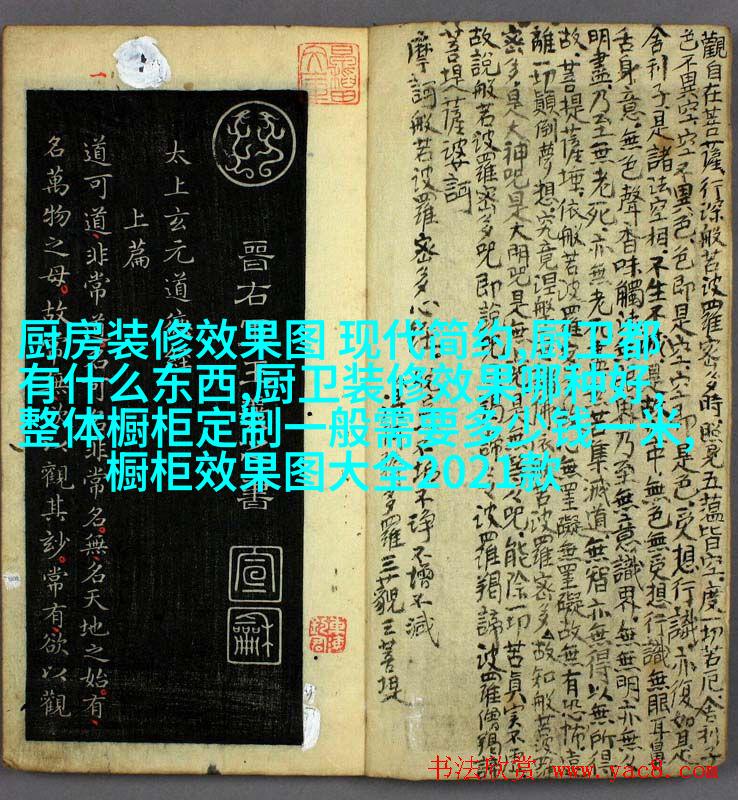 厨房装修效果图 现代简约,厨卫都
有什么东西,厨卫装修效果哪种好,
整体橱柜定制一般需要多少钱一米,
橱柜效果图大全2021款
觀自在菩薩行深般若波羅蜜多時照見五蘊皆空度一切苦厄舍利子
色不異空空不異色色即是空空即是色受想行識亦復如是
舍利子是諸法空相不生不滅中無色無受想行識無眼耳鼻
舌身意無色聲香味觸法界乃至無意識界無無明亦無
明盡乃至無老死亦無老苦集滅道無智亦無得以無所得
故菩提薩埵依般若波羅無罣礙無罣礙故無有恐怖遠
離一切顛倒夢想究竟涅槃波羅密多故知般若波羅
密多是大神咒是大明咒是無咒能除一切苦真實不虛
故說般若波羅密多咒即說波羅羯諦波羅僧羯諦
菩提薩婆訶
不垢不淨不增不減
摩訶般若波羅密多心經
多羅三藐三菩提
太上玄元道德經
上篇
道可道非常道名可名非常名無名天地之始有
名萬物之母故常無欲以觀其玅常有欲以觀
晉右軍王羲之書
宣
龢
书法欣赏 www.yac8.com